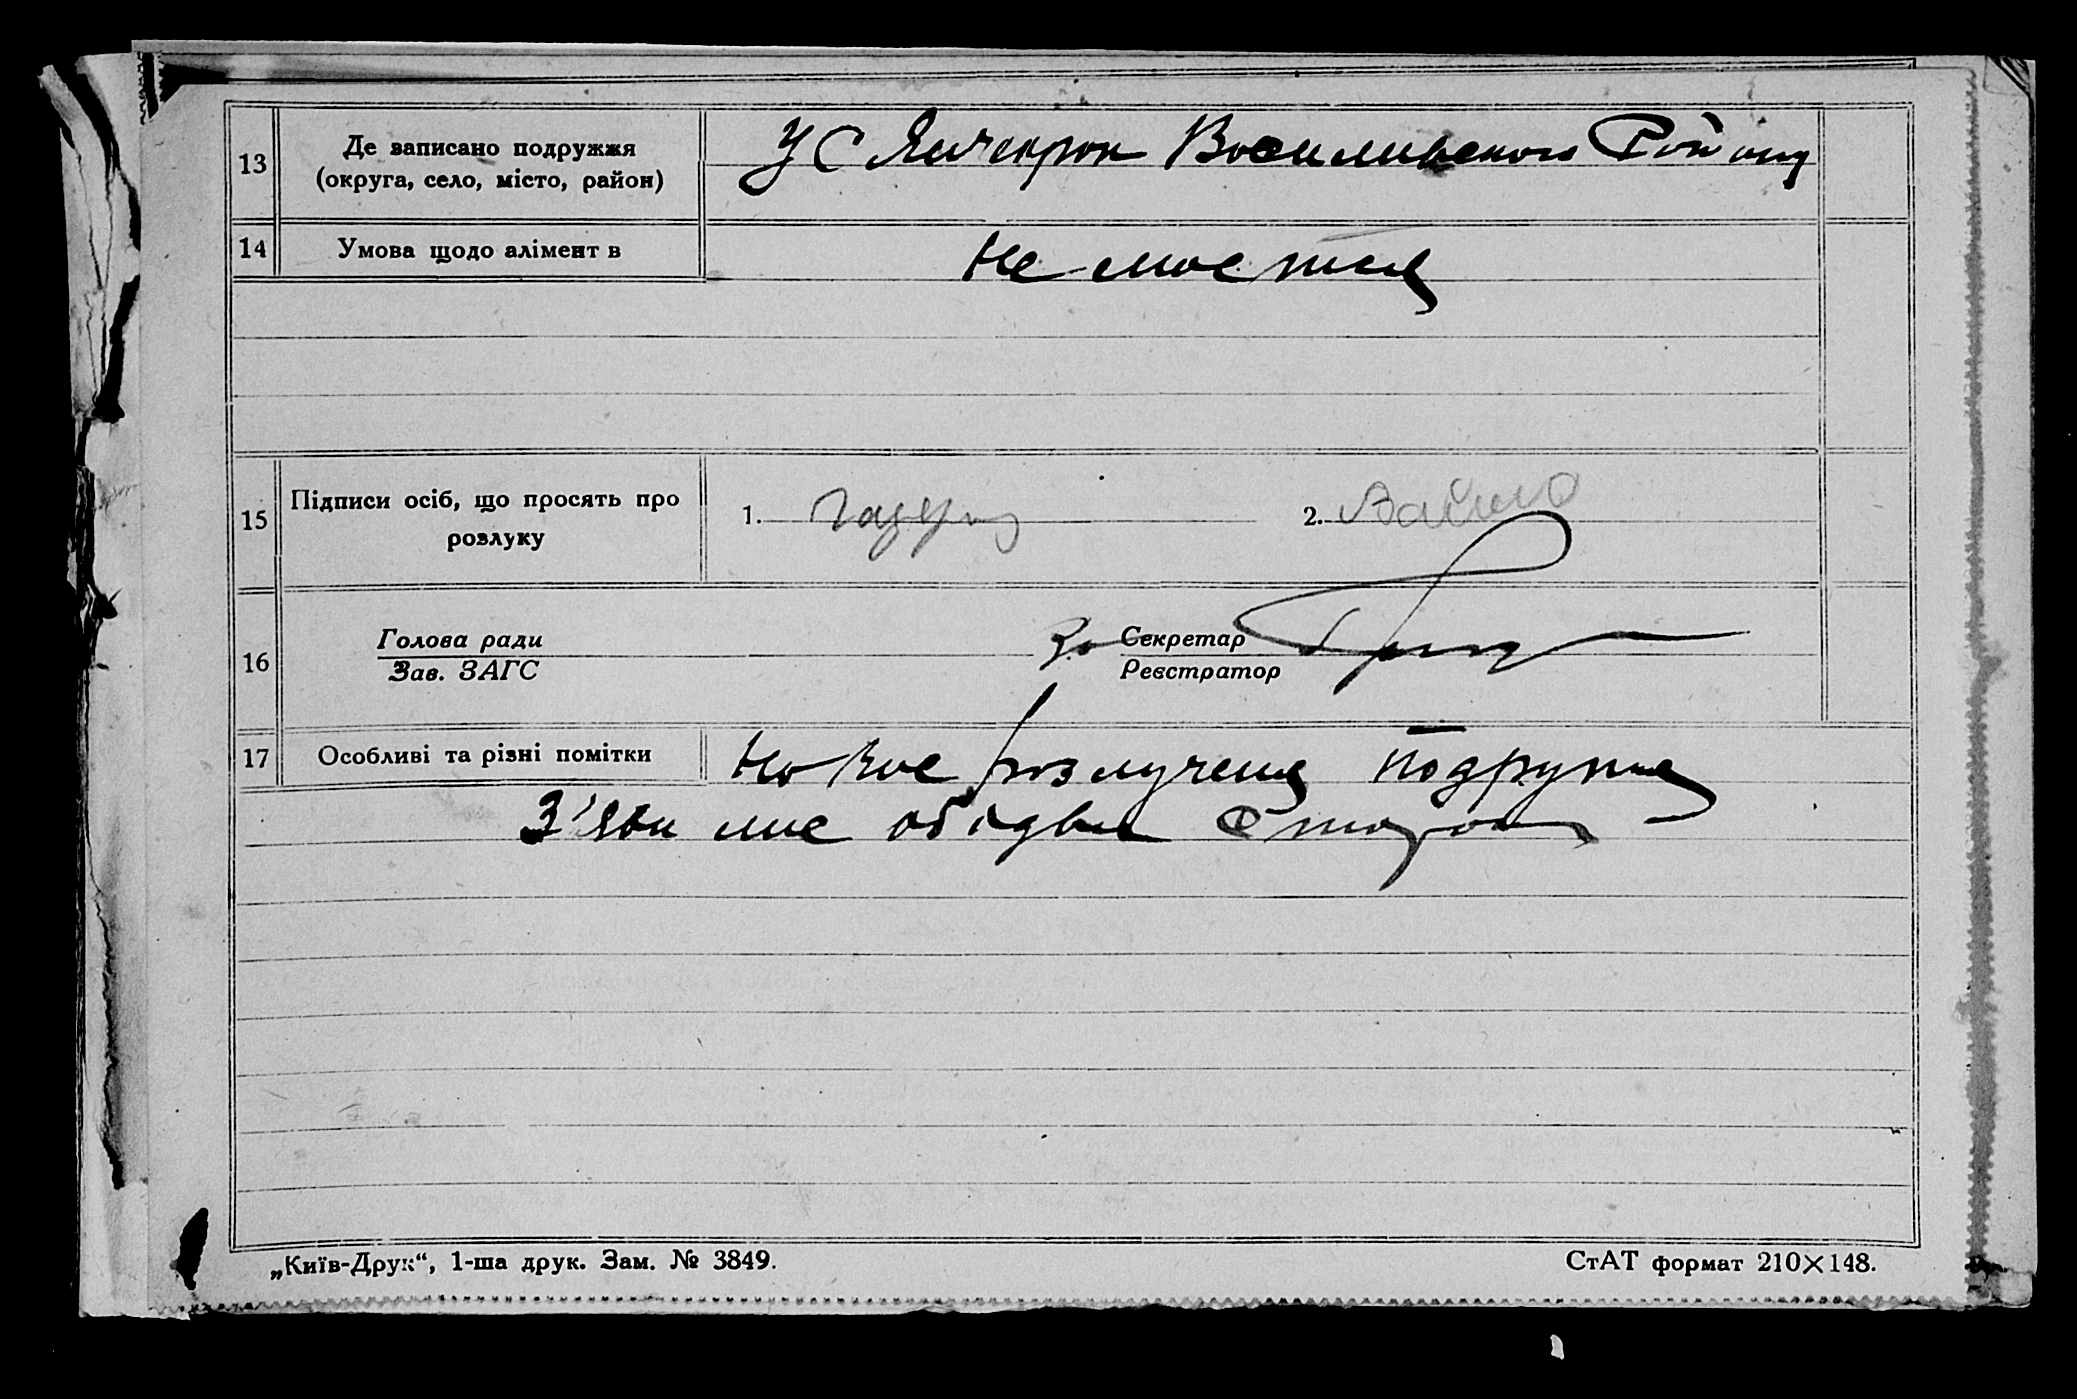 13 Де записано подружжя
(округа, село, місто, район)
У С Янчекрак Василивского Району
14 Умова щодо алімент в
Не маєтся
15 Підписи осіб, що просять про
розлуку
1. 2.
16 Голова ради
Зав. ЗАГС
За Секретар
Реєстратор
17 Особливі та різні помітки
розлученя подружя
З'явились обидви сторони
„Київ-Друк“, 1-ша друк. Зам. № 3849.
СтАТ формат 210×148.